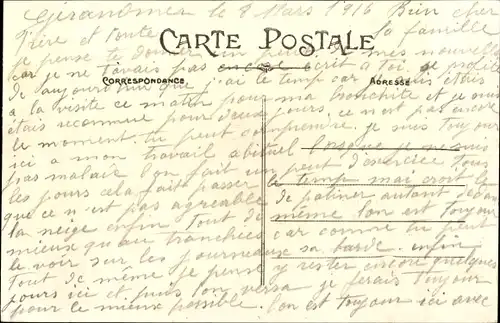 Gérardmer le 8 Mars 1916 Bien cher
frère et toute la famille
je pense te donner un peu de mes nouvelles
CARTE POSTALE
car je ne t'avais pas encore écrit à toi je profite
CORRESPONDANCE
ADRESSE
de aujourd'hui que j'ai le temp car je suis étais
a la visite ce matin pour ma bronchite et je suis
étais reconnue pour deux jours. ce n'est pas encore
le moment. tu peut comprendre. je suis toujour
ici a mon travail abituel lorsque je ne suis
pas malade. lon fait un peut d'exercice tous
les jours cela fait passer le temp mai croit le
que ce n'est pas agréable de patiner autant dedans
la neige enfin tout de même lon est toujour
mieux qu'au tranchées car comme tu peut
le voir sur les journeaux sa barde. enfin
tout de même je pense y rester encore quelques
jours ici et puis lon versa je ferais toujour
pour le mieux possible. lon est toujour ici avec